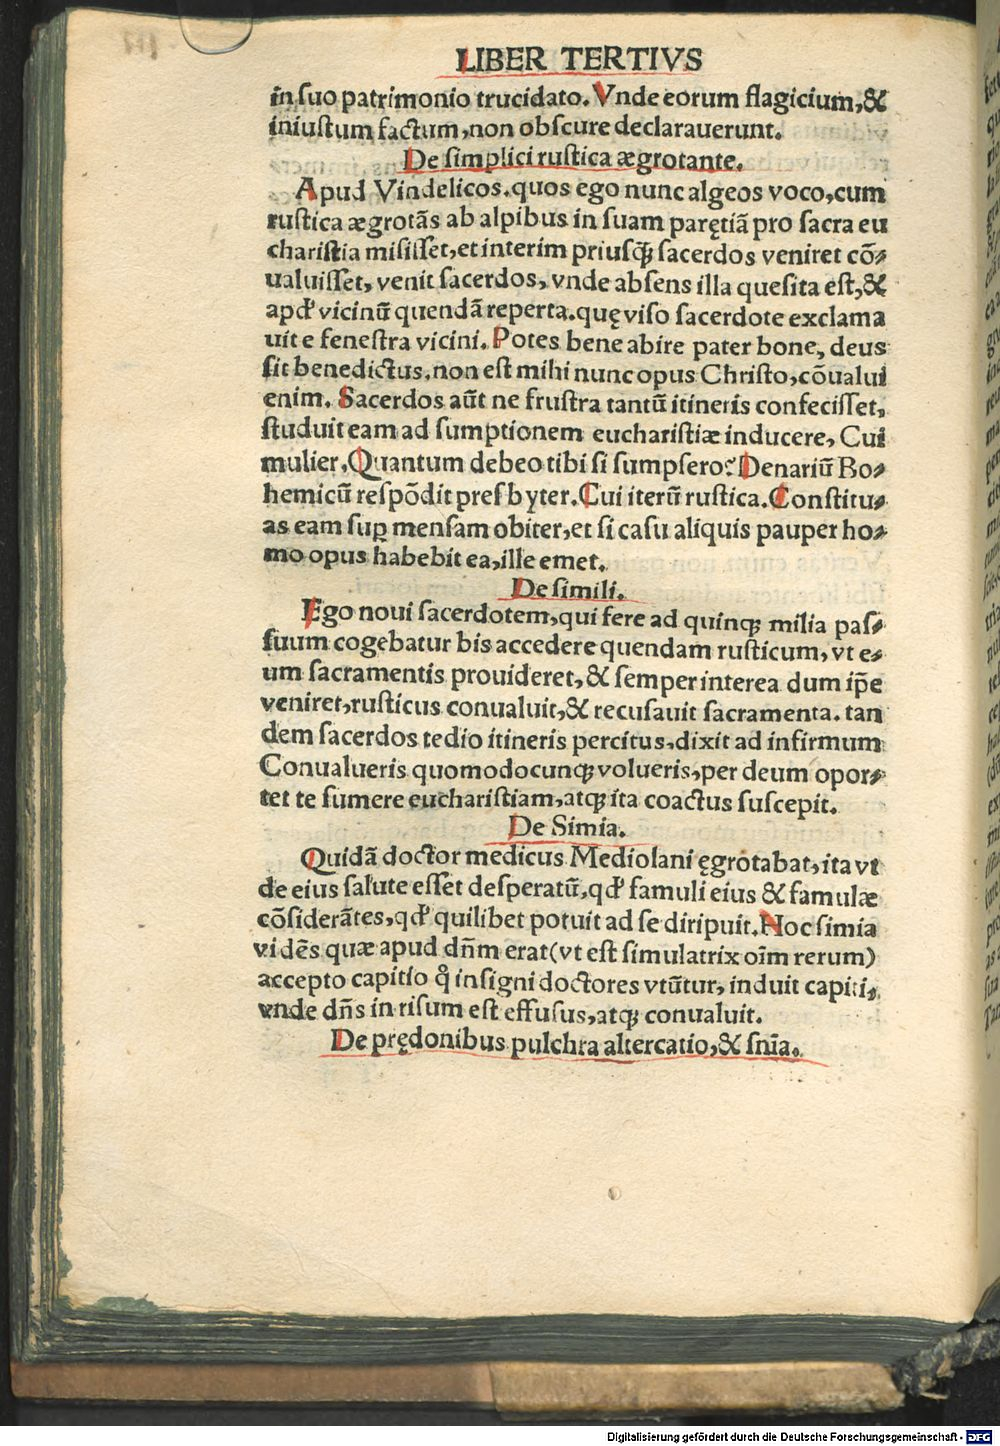 LIBER TERTIVS
in ſuo patrimonio trucidato. Vnde eorum flagicium, &
iniuſtum factum, non obſcure declarauerunt.
De ſimplici ruſtica ægrotante.
Apud Vindelicos. quos ego nunc algeos voco, cum
ruſtica ægrotãs ab alpibus in ſuam parętiã pro ſacra eu
chariſtia miſiſſet, et interim priuſꝗ̃ ſacerdos veniret cõ⸗
ualuiſſet, venit ſacerdos, vnde abſens illa queſita eſt, &
apđ vicinũ quendã reperta. quę viſo ſacerdote exclama
uit e feneſtra vicini. Potes bene abire pater bone, deus
ſit benedictus. non eſt mihi nunc opus Chriſto, cõualui
enim. Sacerdos aũt ne fruſtra tantũ itineris confeciſſet,
ſtuduit eam ad ſumptionem euchariſtiæ inducere, Cui
mulier. Quantum debeo tibi ſi ſumpſero? Denariũ Bo⸗
hemicũ reſpõdit preſbyter. Cui iterũ ruſtica. Conſtitu⸗
as eam ſuꝑ menſam obiter, et ſi caſu aliquis pauper ho⸗
mo opus habebit ea, ille emet.
De ſimili.
Ego noui ſacerdotem, qui fere ad quinqꝫ milia paſ⸗
ſuum cogebatur bis accedere quendam ruſticum, vt e⸗
um ſacramentis prouideret, & ſemper interea dum ip̃e
veniret, ruſticus conualuit, & recuſauit ſacramenta. tan
dem ſacerdos tedio itineris percitus, dixit ad infirmum
Conualueris quomodocunqꝫ volueris, per deum opor⸗
tet te ſumere euchariſtiam, atqꝫ ita coactus ſuſcepit.
De Simia.
Quidã doctor medicus Mediolani ęgrotabat, ita vt
de eius ſalute eſſet deſperatũ, qđ famuli eius & famulæ
cõſiderãtes, qđ quilibet potuit ad ſe diripuit. Hoc ſimia
vidẽs quæ apud dñm erat (vt eſt ſimulatrix oĩm rerum)
accepto capitio q̊ inſigni doctores vtũtur, induit capiti,
vnde dñs in riſum eſt effuſus, atqꝫ conualuit.
De prędonibus pulchra altercatio, & ſñia.
Digitalisierung gefördert durch die Deutsche Forschungsgemeinschaft - DFG